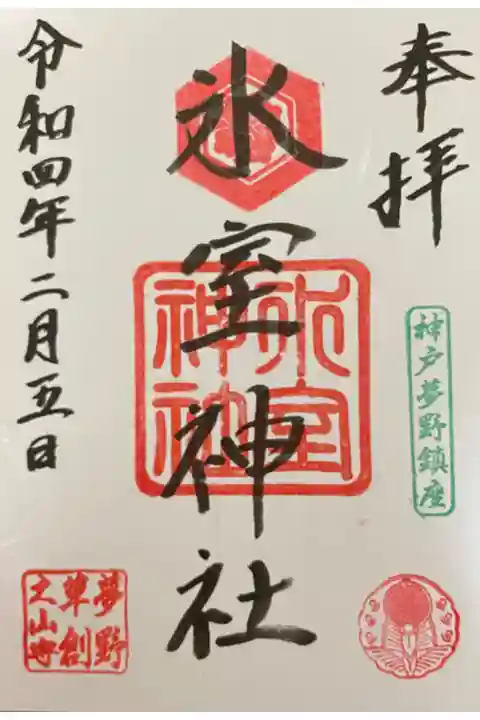 奉拝
神戸夢野鎮座
氷室神社
氷室
神社
令和四年二月五日
夢野
草創
之山寺